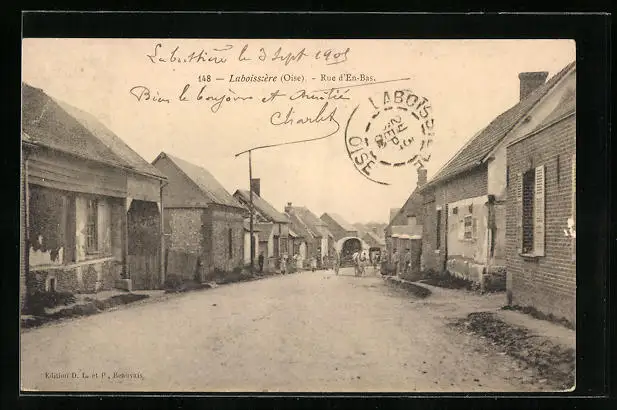 Laboissière le 3 Sept 1905
148 — Laboissière (Oise) — Rue d'En-Bas.
Bien le bonjour et Amitié
Charlot
LABOISSIERE
3
SEPT
OISE
Edition D. L. et P., Beauvais